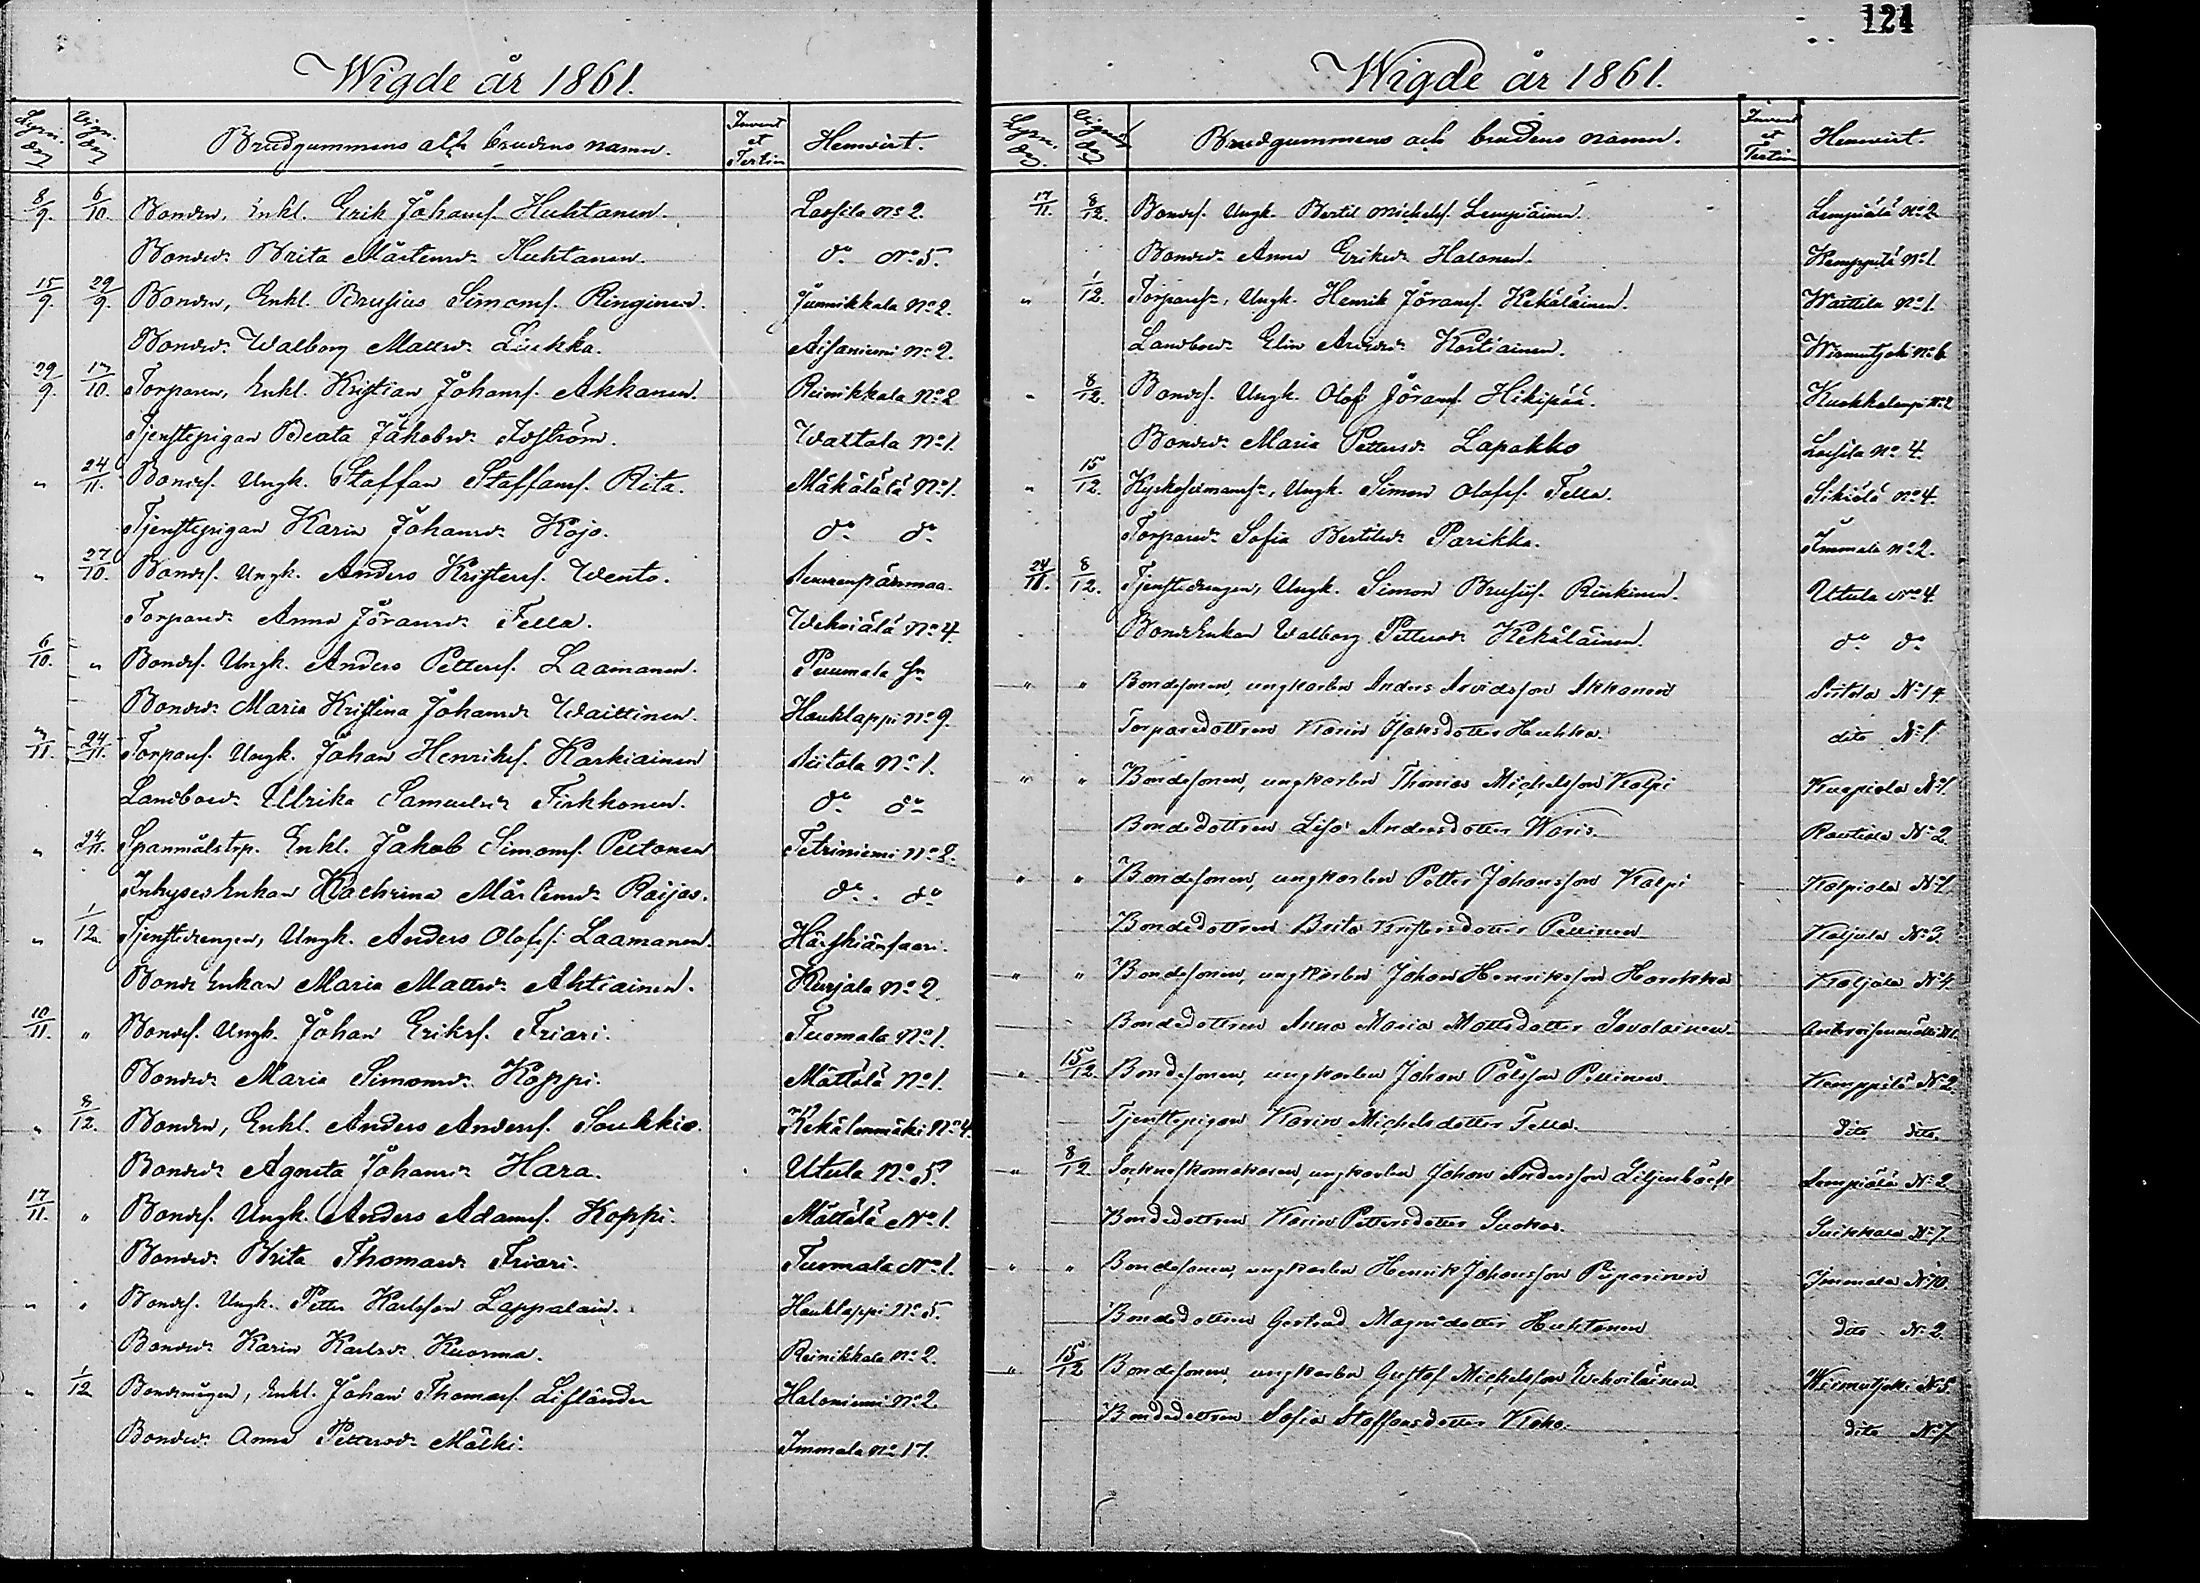 124
Wigde år 1861.
Lysn. dag Vign. dag Brudgummens och brudens namn. Invent et Tertin Hemvist.
8/9. 6/10. Bonden, Enkl. Erik Johansf. Huhtanen. Lassila No 2.
Bonded. Brita Mårtensd. Huhtanen. do No 5.
15/9. 29/9. Bonden, Enkl. Brusius Simonsf. Ringinen. Junnikkala No 2.
Bonded. Walborg Mattsd. Liukka. No 2.
29/9. 17/10. Torparen, Enkl. Kristian Johansf. Akkanen. Reinikkala No 2
Tjenstepigan Beata Jakobsd. Wattola No 1.
" 24/11. Bondes. Ungk. Staffan Staffansf. Rita. Mäkälälä No 1.
Tjenstepigan Karin Johansd. Kojo. do do
" 27/10. Bondes. Ungk. Anders Kristersf. Wento.
Torpared. Anna Jöransd. Fella. Wehviälä No 4.
6/10. " Bondes. Ungk. Anders Pettersf. Laamanen. Puumala sn
Bonded. Maria Kristina Johansd. Waittinen. Hauklappi No 9.
3/11. 24/11. Torpars. Ungk. Johan Henriksf. Karkiainen Siitola No 1.
Landboed. Ulrika Samuelsd. Tirkkonen. do do
" 24/11. Spanmålstrp. Enkl. Jakob Simonsf. Peltonen Tetriniemi No 2.
Inhyses Enkan Kathrina Mårtensd. Raijas. do do
" 1/12. Tjenstedrengen, Ungk. Anders Olofsf. Laamanen. Härskiänsaari.
Bonde Enkan Maria Mattsd. Ahtiainen. Kurjala No 2
10/11. " Bondes. Ungk. Johan Eriksf. Friari. Tuomala No 1.
Bonded. Maria Simonsd. Koppi. Mättälä No 1.
" 8/12. Bonden, Enkl. Anders Andersf. Soukkio. Kekälenmäki No 4.
Bonded. Agneta Johansd. Hara. Utula No 5.
17/11. " Bondes. Ungk. Anders Adamsf. Koppi. Mättälä No 1.
Bonded. Brita Thomasd. Friari. Tuomala No 1.
" " Bondes. Ungk. Petter Karlsson Lappalain. Hauklappi No 5.
Bonded. Karin Karlsd. Kuosma. Reinikkala No 2.
" 1/12 Bondemågen, Enkl. Johan Thomasf. Lifländer Haloniemi No 2
Bonded. Anna Pettersd. Mälki. Immala No 17.
Wigde år 1861.
Lysn. dag. Vigsel dag Brudgummens och brudens namn. Invent et Tertin Hemvist.
17/11. 8/12. Bondes. Ungk. Bertil Michelsf. Lempiäinen. Lempiälä No 2
Bonded. Anna Eriksd. Halonen. Kemppilä No 1.
" 1/12. Torpares, Ungk. Henrik Jöransf. Kekäläinen. Waittila No 1.
Landboed. Elin Arvidsd. Kostiainen. No 6
" 8/12. Bondes. Ungk. Olof Jöransf. Hikipää. No 2
Bonded. Maria Pettersd. Lapakko Lassila No 4.
" 15/12. Ungk. Simon Olofsf. Fella. Sikiälä No 4.
Torpared. Sofia Bertilsd. Parikka. Immala No 2.
24/11. 8/12. Tjenstedrengen, Ungk. Simon Brusiif. Rinkinen. Utula No 4.
BondeEnkan Walborg Pettersd. Kekäläinen. do do
" " Bondesonen, ungkarlen Anders Arvidsson Akkanen Siitola No 14
Torparedottren Karin Isaksdotter Huhka. dito No 1
" " Bondesonen, ungkarlen Thomas Michelsson Kolpi Kurpiola No 1.
Bondedottren Lisa Andersdotter Woris. Rautiala No 2.
" " Bondesonen, ungkarlen Petter Johansson Kolpi Kolpiola No 1.
Bondedottren Brita Kristersdotter Pellinen Koljula No 3.
" " Bondesonen, ungkarlen Johan Henriksson Haukka Koljola No 4.
Bondedottren Anna Maria Mattsdotter Savolainen No 1.
" 15/12 Bondesonen, ungkarlen Johan Pålsson Pellinen Kemppilä No 2
Tjenstepigan Karin Michelsdotter Fella. dito dito
" 8/12 Sockneskomakaren, ungkarlen Johan Andersson Liljenbäck Lempiälä No 2
Bondedottren Karin Pettersdotter Suokas. Suikkala No 7
" " Bondesonen, ungkarlen Henrik Johansson Piiparinen Immala No 10
Bondedottren Gertrud Magnidotter Huhtanen dito No 2.
" 15/12 Bondesonen, ungkarlen Gustaf Michelsson Wehviläinen No 5.
Bondedottren Sofia Staffansdotter Koho. dito No 7